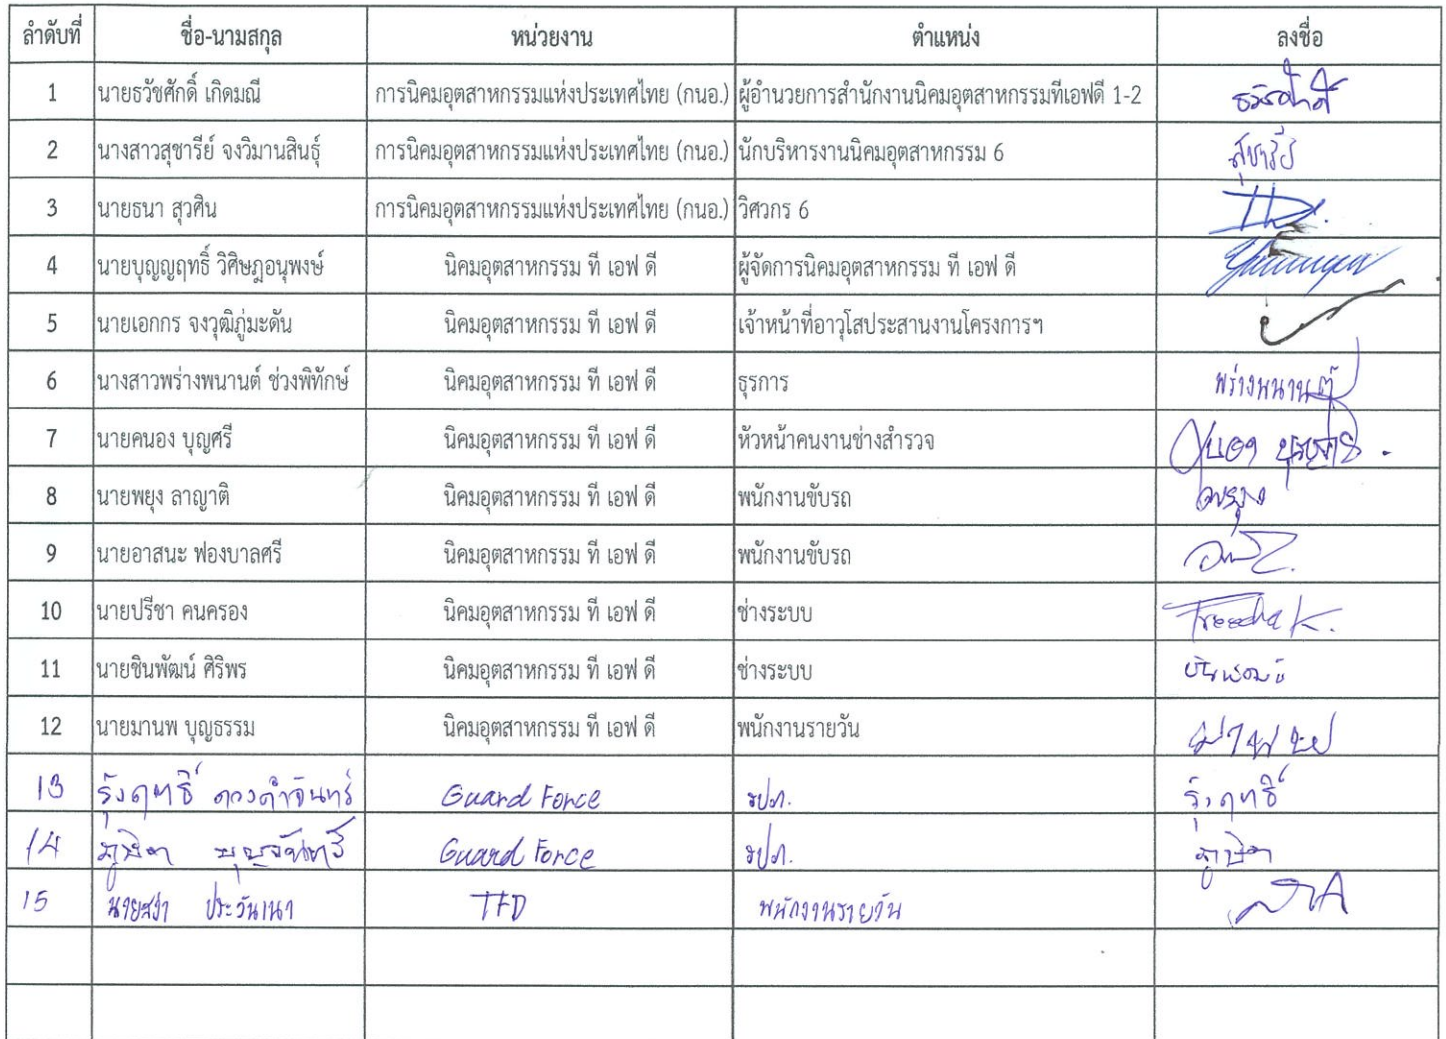 ลำดับที่ ชื่อ-นามสกุล หน่วยงาน ตำแหน่ง ลงชื่อ
1 นายธวัชศักดิ์ เกิดมณี การนิคมอุตสาหกรรมแห่งประเทศไทย (กนอ.) ผู้อำนวยการสำนักงานนิคมอุตสาหกรรมทีเอฟดี 1-2
2 นางสาวสุชารีย์ จงวิมานสินธุ์ การนิคมอุตสาหกรรมแห่งประเทศไทย (กนอ.) นักบริหารงานนิคมอุตสาหกรรม 6 สุชารีย์
3 นายธนา สุวศิน การนิคมอุตสาหกรรมแห่งประเทศไทย (กนอ.) วิศวกร 6
4 นายบุญญฤทธิ์ วิศิษฎอนุพงษ์ นิคมอุตสาหกรรม ที เอฟ ดี ผู้จัดการนิคมอุตสาหกรรม ที เอฟ ดี
5 นายเอกกร จงวุฒิภู่มะดัน นิคมอุตสาหกรรม ที เอฟ ดี เจ้าหน้าที่อาวุโสประสานงานโครงการฯ
6 นางสาวพร่างพนานต์ ช่วงพิทักษ์ นิคมอุตสาหกรรม ที เอฟ ดี ธุรการ พร่างพนานต์
7 นายคนอง บุญศรี นิคมอุตสาหกรรม ที เอฟ ดี หัวหน้าคนงานช่างสำรวจ
8 นายพยุง ลาญาติ นิคมอุตสาหกรรม ที เอฟ ดี พนักงานขับรถ พยุง
9 นายอาสนะ ฟองบาลศรี นิคมอุตสาหกรรม ที เอฟ ดี พนักงานขับรถ
10 นายปรีชา คนครอง นิคมอุตสาหกรรม ที เอฟ ดี ช่างระบบ Preecha K.
11 นายชินพัฒน์ ศิริพร นิคมอุตสาหกรรม ที เอฟ ดี ช่างระบบ
12 นายมานพ บุญธรรม นิคมอุตสาหกรรม ที เอฟ ดี พนักงานรายวัน
13 รุ่งฤทธิ์ ดวงคำจันทร์ Guard Force รปภ. รุ่งฤทธิ์
14 Guard Force รปภ.
15 TFD พนักงานรายวัน